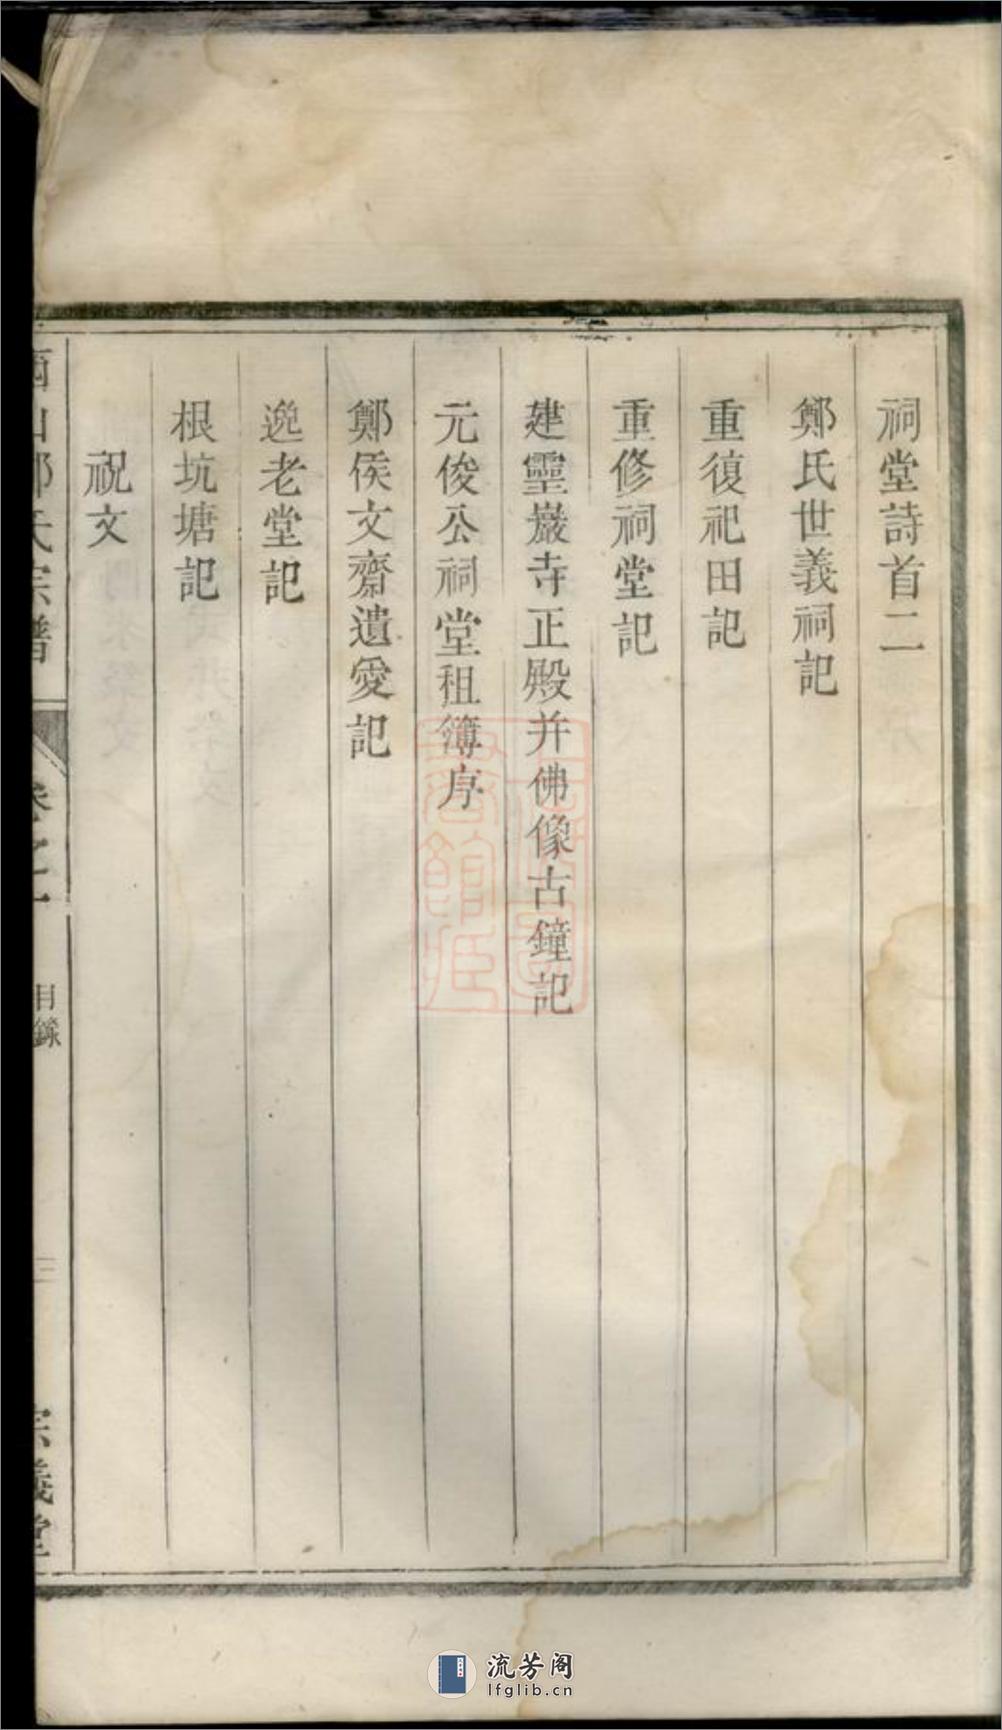 祠堂詩首二
鄭氏世義祠記
重復祀田記
重修祠堂記
建靈巖寺正殿并佛像古鐘記
元俊公祠堂租簿序
鄭侯文齋遺愛記
逸老堂記
根坑塘記
祝文
氏宗譜
卷之一
目錄
三
宗義堂
流芳阁
lfglib.cn